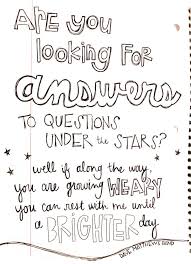 ARE YOU
LOOKING FOR
answers
TO QUESTIONS
UNDER THE STARS?
well if along the way,
you are growing WEARY
you can rest with me until
a BRIGHTER day
DAVE MATTHEWS BAND